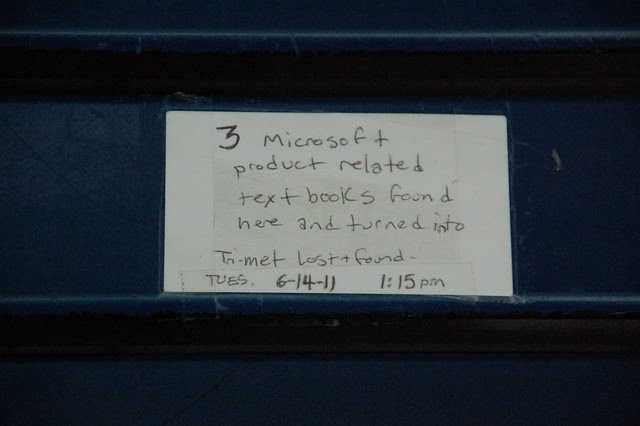 3 Microsoft
product related
text books found
here and turned into
Tri-met Lost + found -
TUES. 6-14-11 1:15 pm